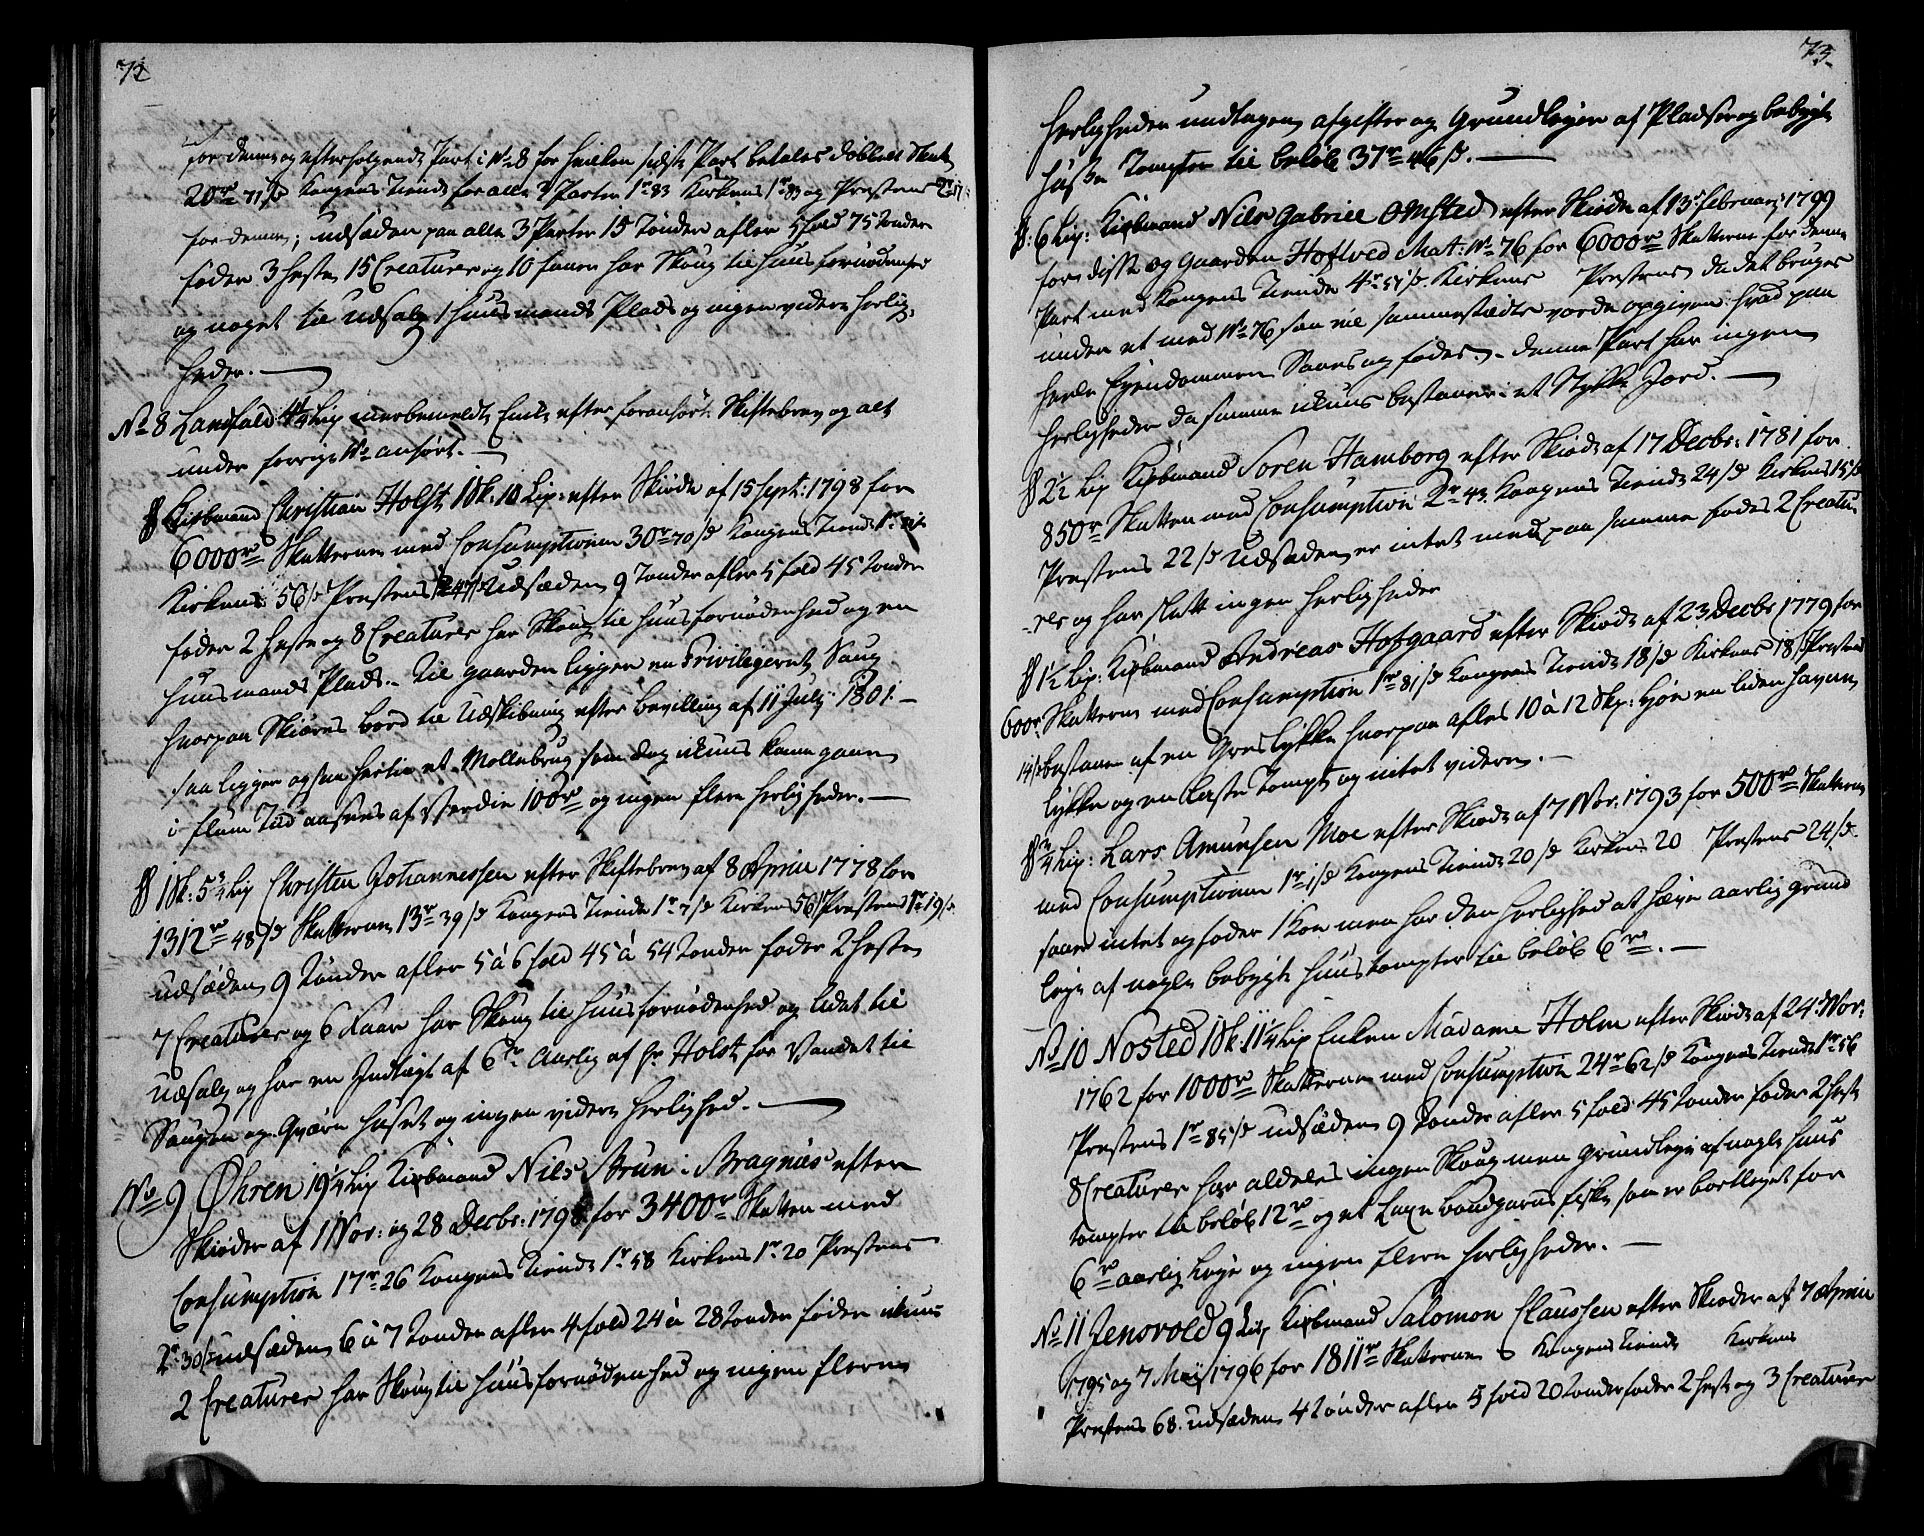 72
for denne og efterfølgende Part i No 8 for hvilken sidste Part betales dobbelt Skat
20 rd 71 s Kongens Tiende for alle 3 Parter 1 r 83 Kirkens 1 r 83 og Præstens 2 r 17
for denne; udsæden paa alle 3 Parter 15 Tønder afler 5 fold 75 Tønder
føder 3 Heste 15 Creaturer og 10 Faaer har Skoug til Huusfornødenhed
og noget til Udsalg 1 Huusmands Plads og ingen videre herlig-
heder.
No 8 Landfald 4 1/4 Lip meerbemeldte Enke efter foranførte Skiftebrev og alt
under forrige No anført.
Kiøbmand Christian Holst 1 Sk: 10 Lip: efter Skiøde af 15 Sept: 1798 for
6000 rd Skatterne med Consumptionen 30 r 70 s Kongens Tiende 1 r
Kirkens 56 s Præstens Udsæden 9 Tønder afler 5 fold 45 Tønder
føder 2 Heste og 8 Creaturer har Skoug til Huusfornødenhed og en
Huusmands Plads. Til gaarden ligger en Privilegeret Saug
hvorpaa Skiæres bord til Udskibning efter Bevilling af 11 July 1801.
saa ligger ogsaa hertil et Møllebrug som dog ikuns kann gaae
i flom Tid ansees af Værdie 100 rd og ingen flere herligheder.
1 Sk: 5 3/4 Lip Christen Johannessen efter Skiftebrev af 8 April 1778 for
1312 rd 48 s Skatterne 13 r 39 s Kongens Tiende 1 r 7 s Kirkens 56 s Præstens 1 r 19 s.
udsæden 9 Tønder afler 5 á 6 fold 45 á 54 Tønder føder 2 Heste
7 Creaturer og 6 Faar har Skoug til Huusfornødenhed og lidet til
udsalg og har en Indtægt af 6 rd Aarlig af Hr. Holst for Vandet til
Saugen og Qværn huset og ingen videre herlighed.
No 9 Øhren 19 1/4 Lip Kiøbmand Niels Brun i Bragnæs efter
Skiøder af 1 Nov: og 28 Decbr: 179 for 3400 rd Skatten med
Consumption 17 r 26 Kongens Tiende 1 r 58 Kirkens 1 r 20 Præstens
2 r 30 s udsæden 6 á 7 Tønder afler 4 fold 24 á 28 Tønder føder ikuns
2 Creaturer har Skoug til Huusfornødenhed og ingen flere
73
herligheder undtagen afgifter og Grundleje af Pladser og bebygte
Huse Tomter til beløb 37 rd 46 s.
6 Lip: Kiøbmand Nils Gabriel Omsted efter Skiøde af 13 februarj 1799
for disse og Gaarden Hoftved Mat: No 76 for 6000 rd Skatterne for denne
Part med Kongens Tiende 4 r 51 s. Kirkens Præstens da det bruges
under et med No 76 saa vil sammestædes vorde opgiven hvad paa
hele Eyendommen Saaes og fødes. denne Part har ingen
herligheder da samme ikuns bestaaer i et Stykke Jord.
2 1/2 Lip Kiøbmand Søren Hamborg efter Skiøde af 17 Decbr: 1781 for
850 r Skatten med Consumption 2 r 43. Kongens Tiende 24 s Kirkens 15 s
Præstens 22 s Udsæden er intet men paa samme fødes 2 Creatu-
-rer og har slætt ingen herligheder
1 1/2 Lip: Kiøbmand Andreas Hofgaard efter Skiøde af 23 Decbr 1779 for
600 r. Skatterne med Consumption 1 r 81 s Kongens Tiende 18 s Kirkens 18 s Præstens
14 s bestaaer af en Græsløkke hvorpaa afles 10 á 12 Skp: Høe en liden Haugn
løkke og en Tompt og intet videre.
3/4 Lip: Lars Amunsen Moe efter Skiøde af 7 Nov. 1793 for 500 rd Skatterne
med Consumptionen 1 r 1 s Kongens Tiende 20 s Kirkens 20 Præstens 24 s.
saaer intet og føder 1 Koe men har den herlighed at hæve aarlig grund
leje af nogle bebygte Huustompter til beløb 6 rd.
No 10 Nosted 1 Sk: 11 1/4 Lip Enken Madame Holm efter Skiøde af 24 Nov:
1762 for 1000 rd Skatterne med Consumption 24 r 62 s Kongens Tiende 1 r 56
Præstens 1 r 85 s udsæden 9 Tønder afler 5 fold 45 Tønder føder 2 Heste
8 Creaturer har aldeles ingen Skoug men grundleje af nogle Huus
tompter til beløb 12 rd og et Laxe Landgarns fiske som er bortleyet for
6 rd aarlig Leye og ingen flere herligheder.
No 11 Jensvold 9 Lip Kiøbmand Salomon Claussen efter Skiøder af 7 April
1795 og 7 May 1796 for 1811 r Skatterne Kongens Tiende Kirkens
Præstens 68. udsæden 4 Tønder afler 5 fold 20 Tønder føder 2 Heste og 3 Creaturer